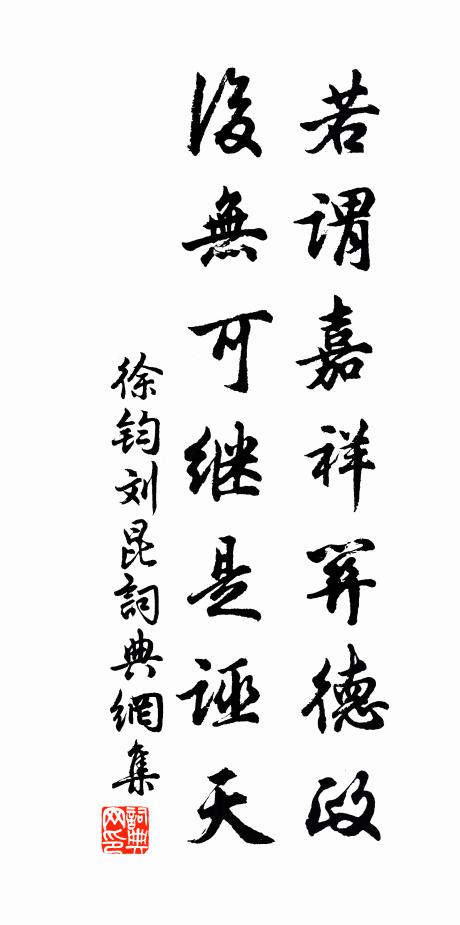 若謂嘉祥關德政
後無可继是誣天
徐钧刘昆詞典網集
詞典网印